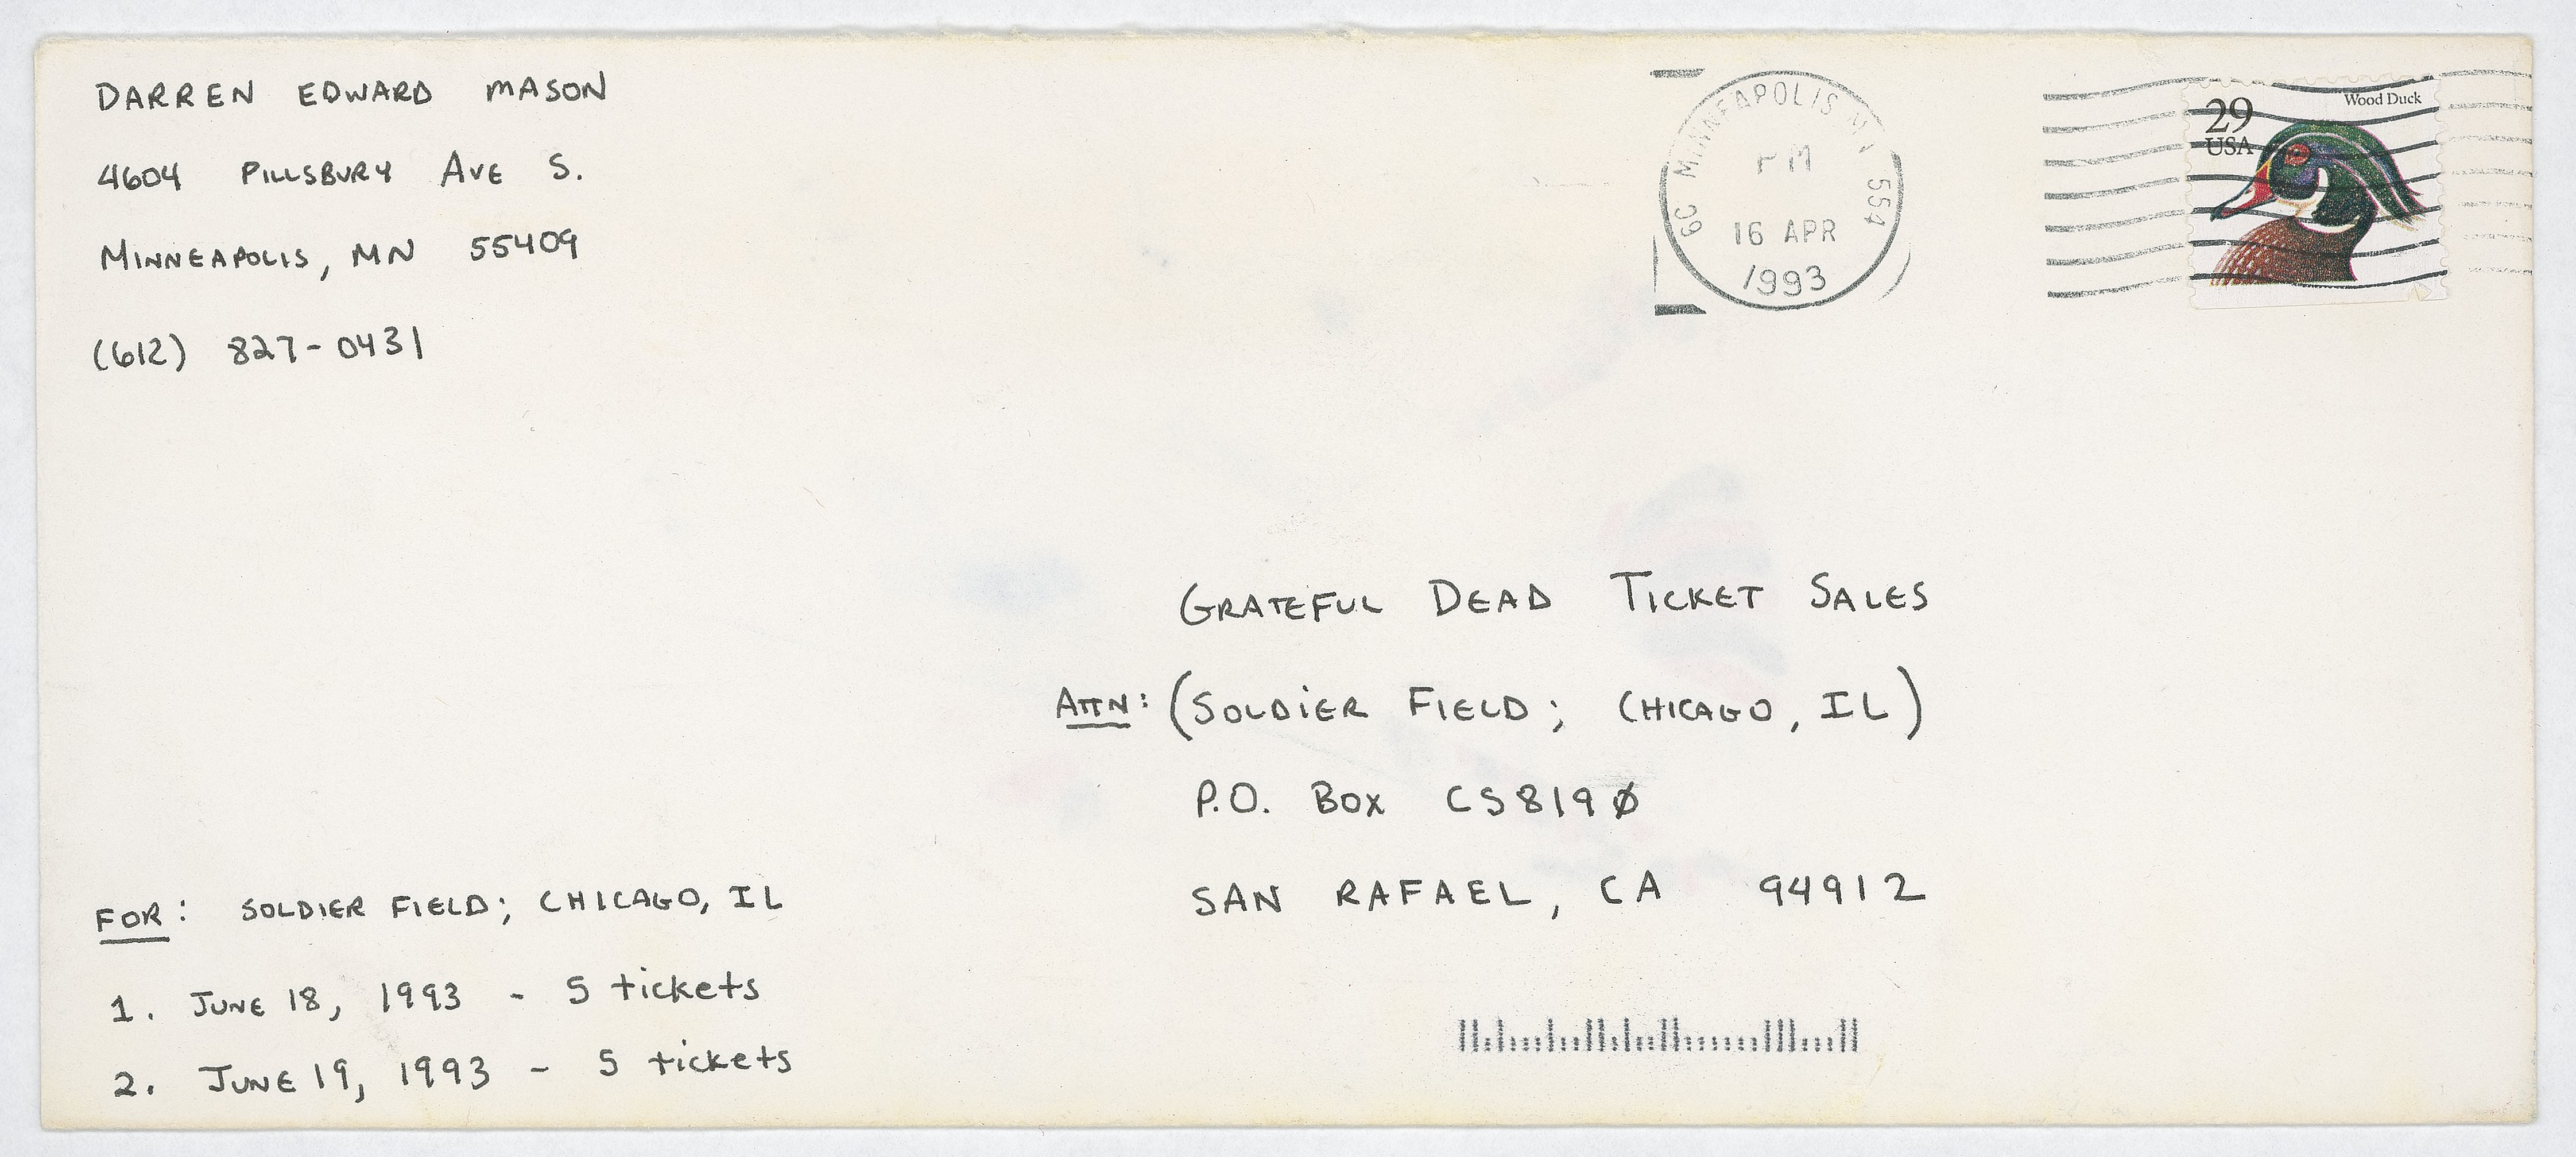 DARREN EDWARD MASON
4604 PILLSBURY AVE S.
MINNEAPOLIS, MN 55409
(612) 827-0431
MINNEAPOLIS MN 554
PM
16 APR
1993
Wood Duck
29
USA
GRATEFUL DEAD TICKET SALES
ATTN: (SOLDIER FIELD; CHICAGO, IL)
P.O. BOX CS8190
SAN RAFAEL, CA 94912
FOR: SOLDIER FIELD; CHICAGO, IL
1. JUNE 18, 1993 - 5 tickets
2. JUNE 19, 1993 - 5 tickets